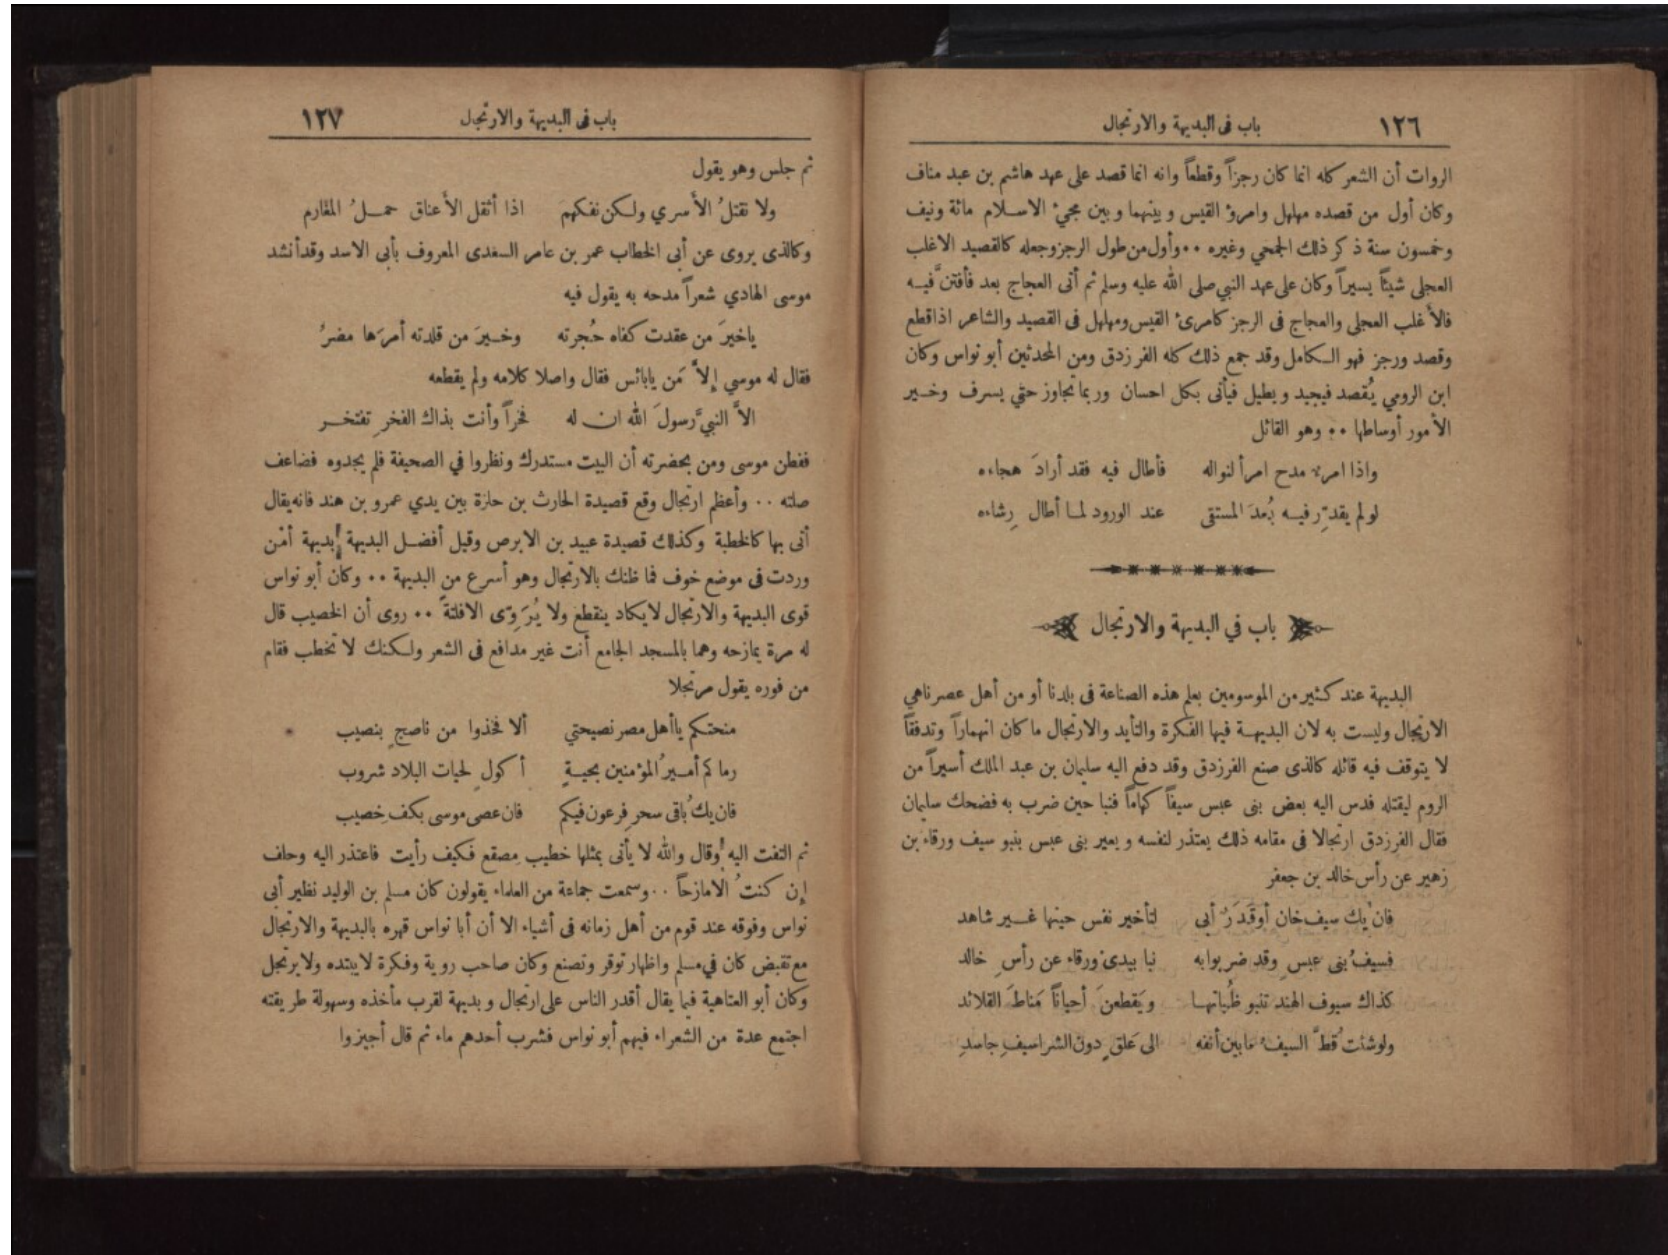 باب فى البديهة والارتجال ١٢٦
الروات أن الشعر كله انما كان رجزاً وقطعاً وانه انما قصد على عهد هاشم بن عبد مناف
وكان أول من قصده مهلهل وامرؤ القيس وبينهما وبين مجئ الاسلام مائة ونيف
وخمسون سنة ذكر ذلك الجمحي وغيره ٠٠ وأول من طول الرجز وجعله كالقصيد الاغلب
العجلى شيئاً يسيراً وكان على عهد النبي صلى الله عليه وسلم ثم أتى العجاج بعد فأفتنَّ فيه
فالأغلب العجلى والعجاج فى الرجز كامرئ القيس ومهلهل فى القصيد والشاعر اذا قطع
وقصد ورجز فهو الكامل وقد جمع ذلك كله الفرزدق ومن المحدثين أبو نواس وكان
ابن الرومي يُقصد فيجيد ويطيل فيأتى بكل احسان وربما تجاوز حتي يسرف وخير
الأمور أوساطها ٠٠ وهو القائل
واذا امرء مدح امرأ لنواله فأطال فيه فقد أرادَ هجاءه
لو لم يقدِّر فيه بُعدَ المستقى عند الورود لما أطال رِشاءه
باب في البديهة والارتجال
البديهة عند كثير من الموسومين بعلم هذه الصناعة فى بلدنا أو من أهل عصرناهي
الارتجال وليست به لان البديهة فيها الفكرة والتأيد والارتجال ما كان انهماراً وتدفقاً
لا يتوقف فيه قائله كالذى صنع الفرزدق وقد دفع اليه سليمان بن عبد الملك أسيراً من
الروم ليقتله فدس اليه بعض بنى عبس سيفاً كهاماً فنبا حين ضرب به فضحك سليمان
فقال الفرزدق ارتجالا فى مقامه ذلك يعتذر لنفسه ويعير بنى عبس بنبو سيف ورقاء بن
زهير عن رأس خالد بن جعفر
فان يك سيف خان أو قَدَرٌ أبى لتأخير نفس حينها غير شاهد
فسيفُ بنى عبسٍ وقد ضربوابه نبا بيدىْ ورقاء عن رأسِ خالد
كذاك سيوف الهند تنبو ظُباتها ويَقطعنَ أحياناً مَناطَ القلائد
ولو شئت قُطَّ السيفُ مابين أنفه الى عَلقٍ دون الشراسيف جاسدِ
باب فى البديهة والارتجال ١٢٧
ثم جلس وهو يقول
ولا نقتلُ الأسري ولكن نفكهمَ اذا أثقل الأعناق حملُ المغارم
وكالذى يروى عن أبى الخطاب عمر بن عامر السعدى المعروف بأبى الاسد وقد أنشد
موسى الهادي شعراً مدحه به يقول فيه
ياخيرَ من عقدت كفاه حُجرته وخيرَ من قلدته أمرَها مضرُ
فقال له موسي إلاَّ مَن يابائس فقال واصلا كلامه ولم يقطعه
الاَّ النبيَّ رسولَ الله ان له فخراً وأنت بذاك الفخرِ تفتخر
ففطن موسى ومن بحضرته أن البيت مستدرك ونظروا في الصحيفة فلم يجدوه فضاعف
صلته ٠٠ وأعظم ارتجال وقع قصيدة الحارث بن حلزة بين يدي عمرو بن هند فانه يقال
أتى بها كالخطبة وكذلك قصيدة عبيد بن الابرص وقيل أفضل البديهة بديهة أمن
وردت فى موضع خوف فما ظنك بالارتجال وهو أسرع من البديهة ٠٠ وكان أبو نواس
قوى البديهة والارتجال لايكاد ينقطع ولا يُرَوّى الا فلتةً ٠٠ روى أن الخصيب قال
له مرة يمازحه وهما بالمسجد الجامع أنت غير مدافع فى الشعر ولكنك لا تخطب فقام
من فوره يقول مرتجلا
منحتكم يأأهل مصر نصيحتي ألا فخذوا من ناصحٍ بنصيب
رماكم أميرُ المؤمنين بحيةٍ أكولٍ لحيات البلاد شروب
فان يك باقى سحر فرعون فيكم فان عصى موسى بكف خصيب
ثم التفت اليه وقال والله لا يأتى بمثلها خطيب مصقع فكيف رأيت فاعتذر اليه وحلف
إن كنتُ الامازحاً ٠٠ وسمعت جماعة من العلماء يقولون كان مسلم بن الوليد نظير أبى
نواس وفوقه عند قوم من أهل زمانه فى أشياء الا أن أبا نواس قهره بالبديهة والارتجال
مع تقبض كان في مسلم واظهار توقر وتصنع وكان صاحب روية وفكرة لايبتده ولايرتجل
وكان أبو العتاهية فيما يقال أقدر الناس على ارتجال وبديهة لقرب مأخذه وسهولة طريقته
اجتمع عدة من الشعراء فيهم أبو نواس فشرب أحدهم ماء ثم قال أجيزوا